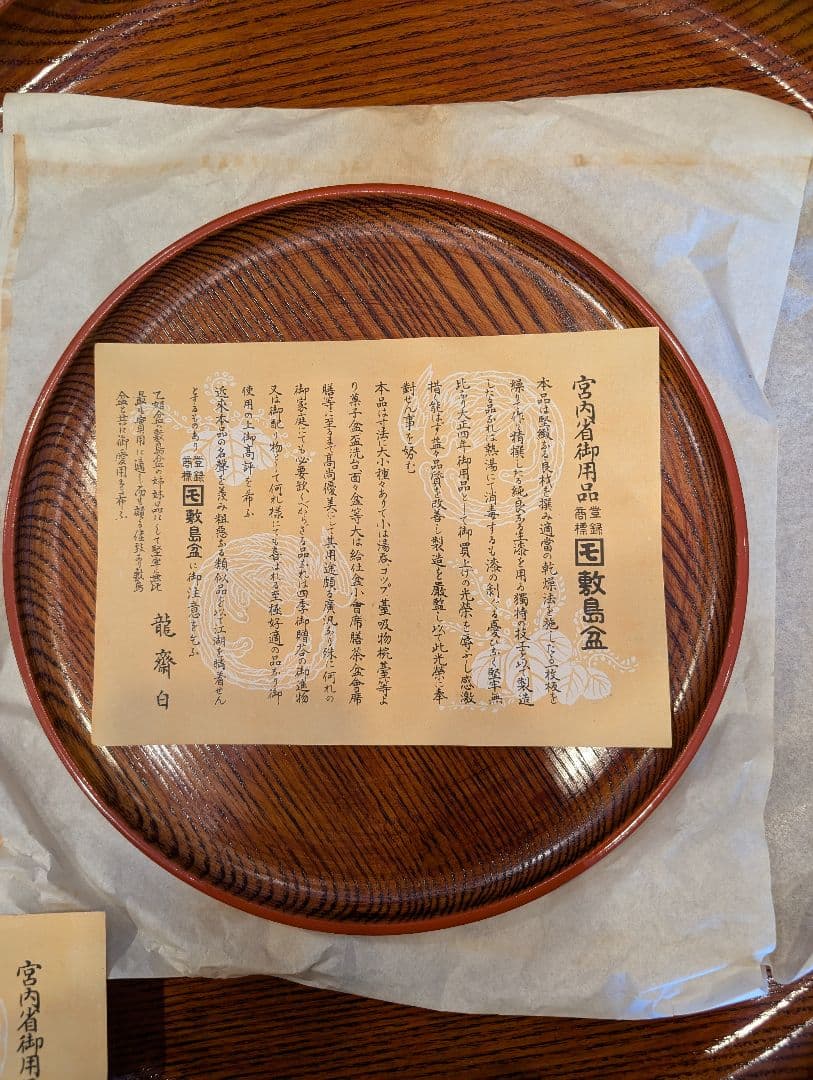 宮内省御用品 登録商標 モ 敷島盆
本品は堅緻なる良材を撰み適當の乾燥法を施したる一枚板を
繰り作り精撰したる純良なる生漆を用る獨特の技工を以て製造
したる品なれは熱湯にて消毒するも漆の剥くる憂ひなく堅牢無
比なり大正四年御用品として御買上の光榮を辱ふし感激
措く能はす益々品質を改善し製造を嚴監し以て此光榮に奉
對せん事を努む
本品は寸法に大小種々ありて小は湯呑コップ臺吸物椀臺等よ
り菓子盆盃洗台面々盆等大は給仕盆小會席膳茶盆會席
膳等に至るまて高尚優美にして其用途頗る廣汎なり殊に何れの
御家庭にても必要欠くへからさる品なれは四季御贈答の御進物
又は御配り物として何れ様にても喜はれる至極好適の品なり御
使用の上御高評を希ふ
近來本品の名聲を羨み粗悪なる類似品を以て江湖を瞞着せん
とするものあり 登録商標 モ 敷島盆 に御注意を乞ふ
乙姫盆は敷島盆の姉妹品にして堅牢無比
最も實用に適し尚も頗る佳致あり敷島
盆と共に御愛用を希ふ
龍齋白
宮内省御用